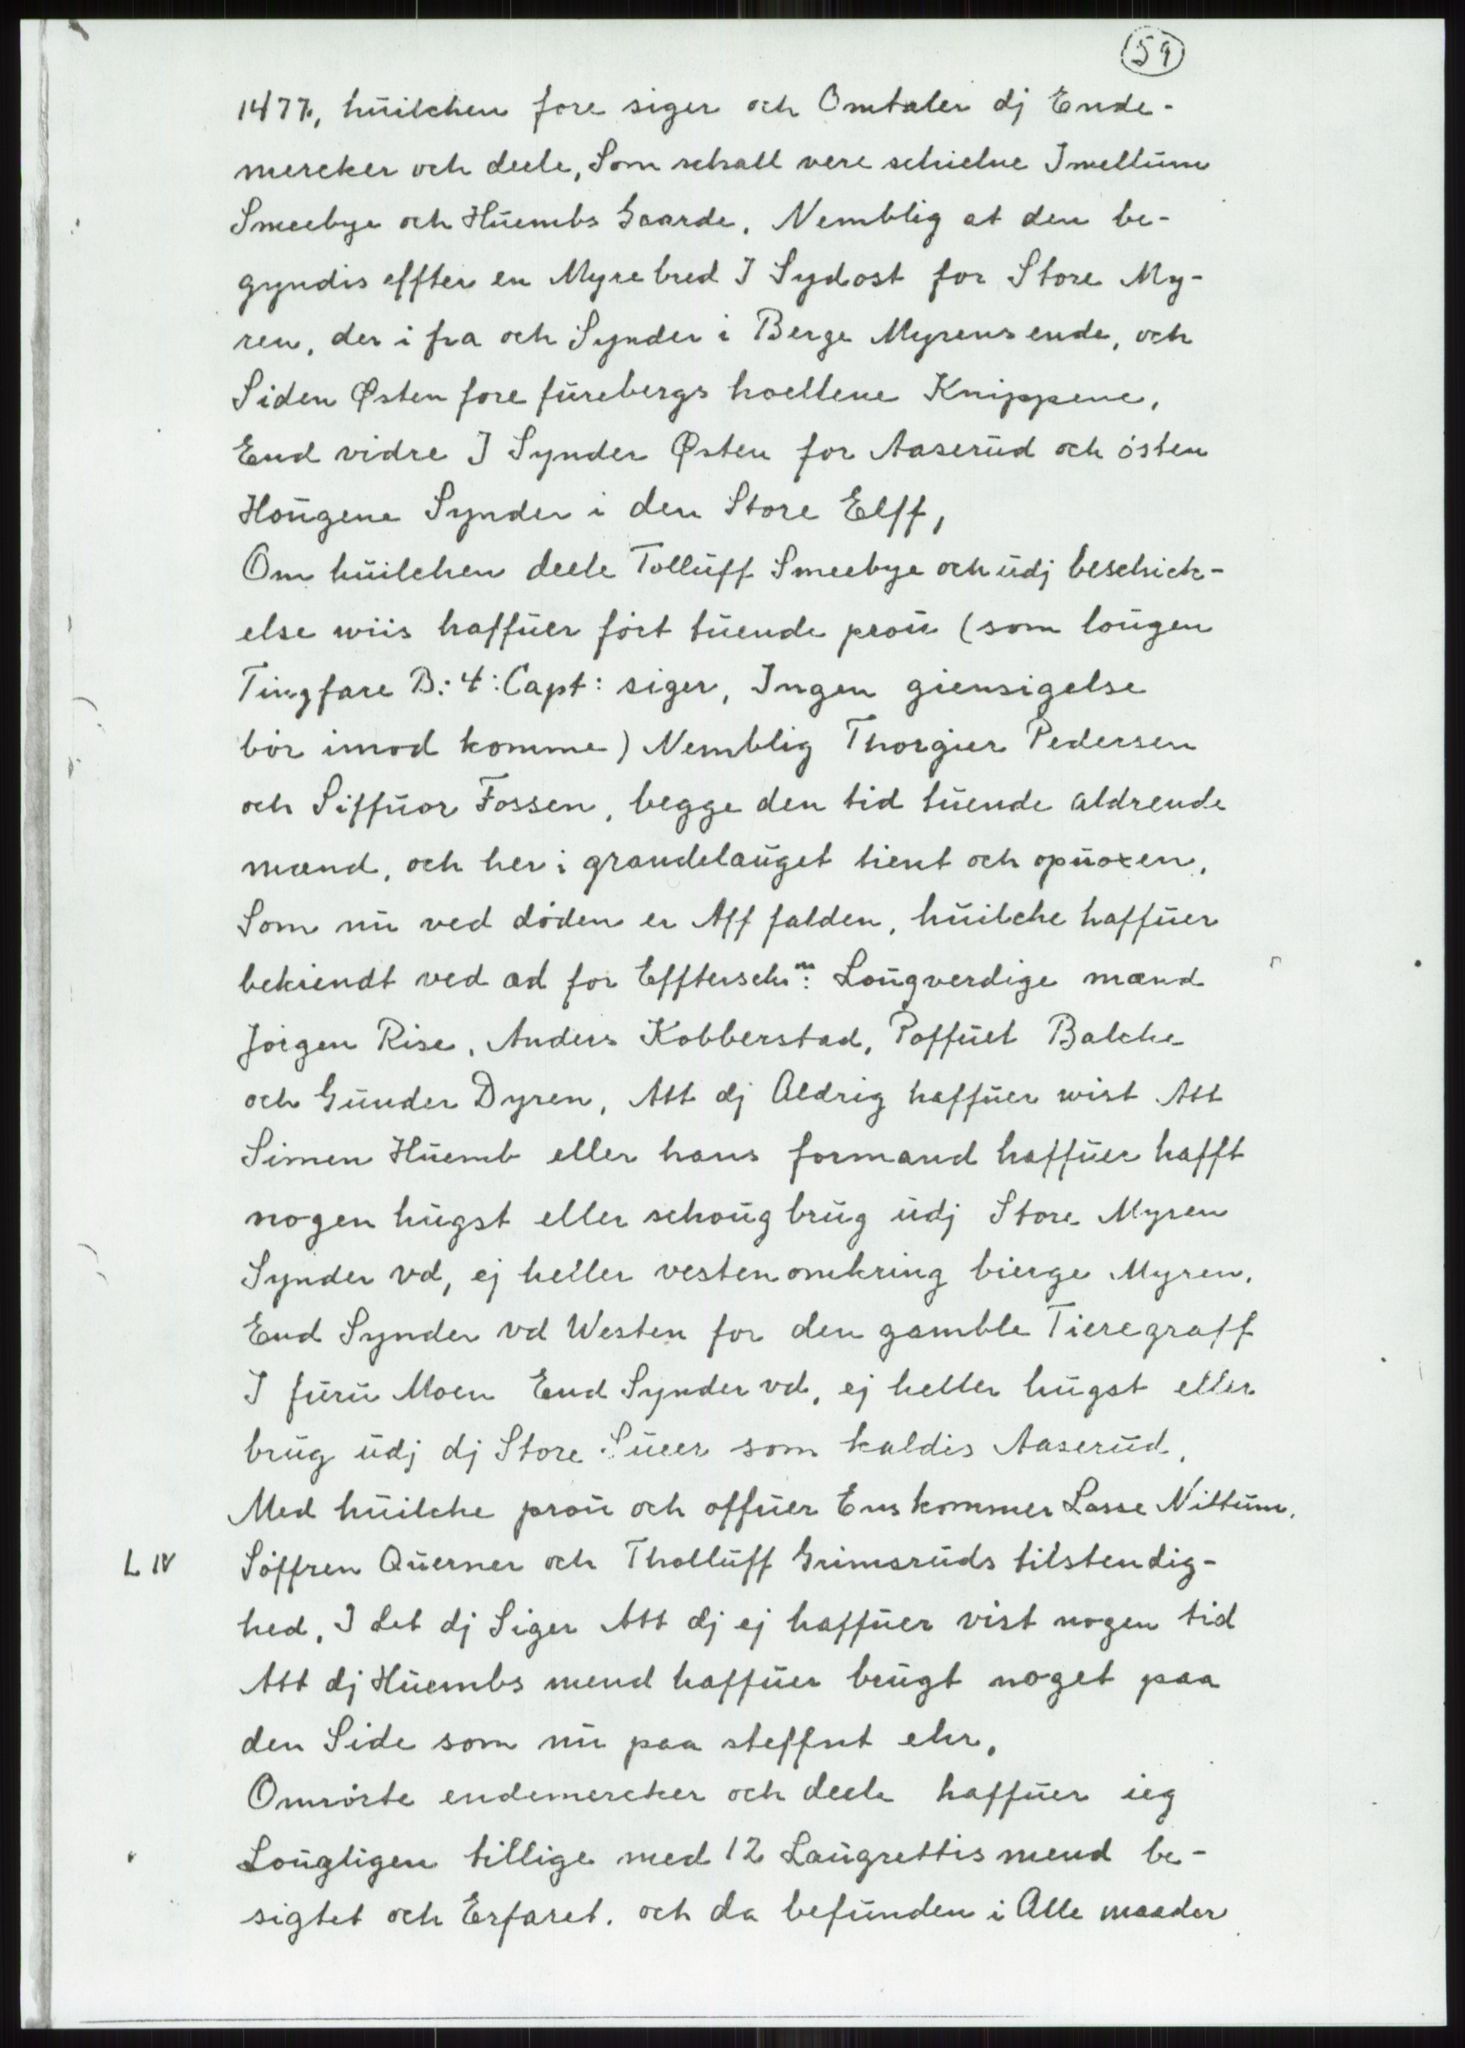 59
1477, huilchen fore siger och Omtaler dj Ende-
mercker och deele, Som schall vere schielne Imellum
Smeebye och Huembs Gaarde. Nemblig at den be-
gyndis effter en Myrebred I Sydost for Store My-
ren, der i fra och Synder i Berge Myrens ende, och
Siden Østen fore furebergs hoellene Knippene,
End vidre I Synder Østen for Aaserud och östen
Hougene Synder i den Store Elff,
Om huilchen deele Tolluff Smeebye och udj beschick-
else wiis haffuer fört tuende prou (som lougen
Tingfare B: 4: Capt: siger, Ingen giensigelse
bör imod komme) Nemblig Thorgier Pedersen
och Siffuor Fossen, begge den tid tuende aldrende
mænd, och her i grandelauget tient och opuoxen,
Som nu ved döden er Aff falden, huilche haffuer
bekiendt ved æd for Efftersch^m: Lougverdige mænd
Jörgen Rise, Anders Kobberstad, Poffuel Balche
och Gunder Dyren, Att dj Aldrig haffuer wist Att
Simen Huemb eller hans formand haffuer hafft
nogen hugst eller schougbrug udj Store Myren
Synder vd, ej heller vesten omkring bierge Myren,
End Synder vd Westen for den gamble Tieregraff
I furu Moen End Synder vd, ej heller hugst eller
brug udj dj Store Sueer som kaldis Aaserud,
Med huilche prou och offuer Ens kommer Lasse Nittum,
L IV Söffren Querner och Tholluff Grimsruds tilstendig-
hed, I det dj Siger Att dj ej haffuer vist nogen tid
Att dj Huembs mend haffuer brugt noget paa
den Side som nu paa steffnt ehr,
Omrörte endemercker och deele haffuer ieg
Lougligen tillige med 12 Laugrettis mend be-
sigtet och Erfaret. och da befunden i Alle maader